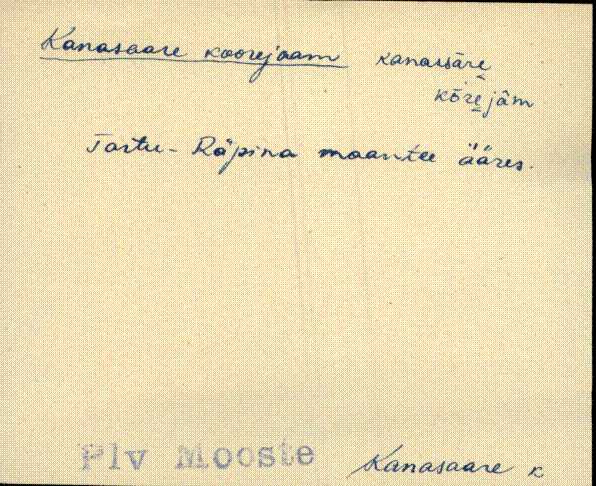 Kanasaare koorejaam kanassāre
kōrejām
Tartu - Räpina maantee ääres.
Plv Mooste Kanasaare k